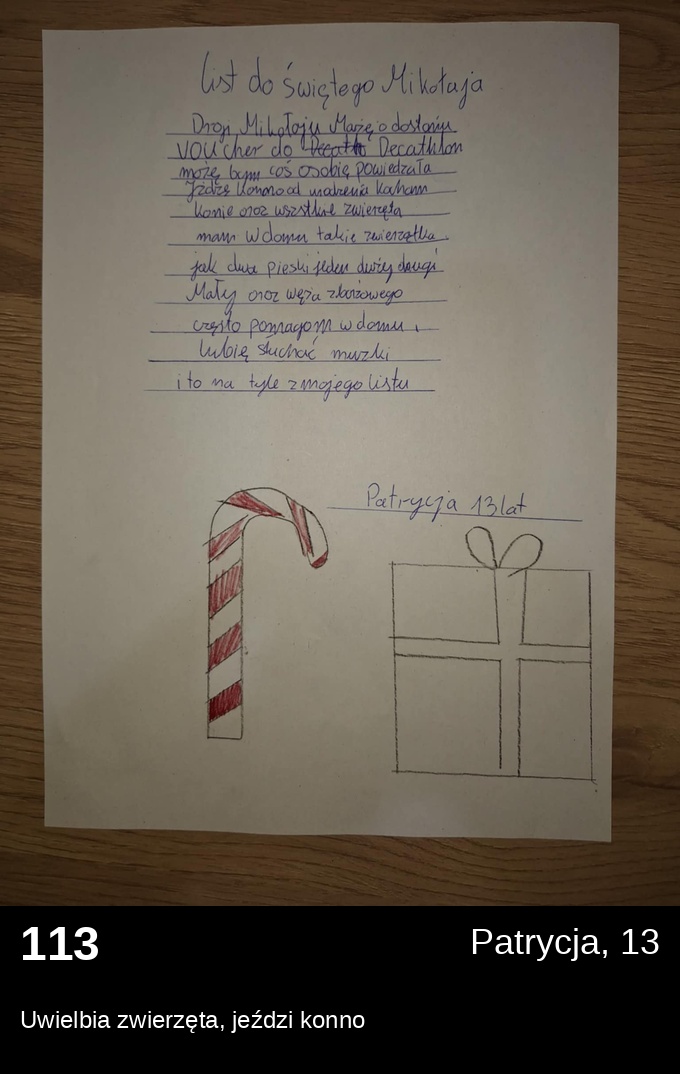 List do świętego Mikołaja
Drogi Mikołaju Marzę o dostaniu
VOUcher do Decathlon
możę bym coś osobię powiedziała
Jżdżę Konno od urodzenia Kocham
konie oroz wszstkie zwierzęta
mam w domu takie zwierzątka
jak dwa pieski jeden duży drugi
Mały oroz węża zbożowego
często pomagom w domu,
lubię słuchać muzki
i to na tyle z mojego listu
Patrycja 13 lat
113
Patrycja, 13
Uwielbia zwierzęta, jeździ konno